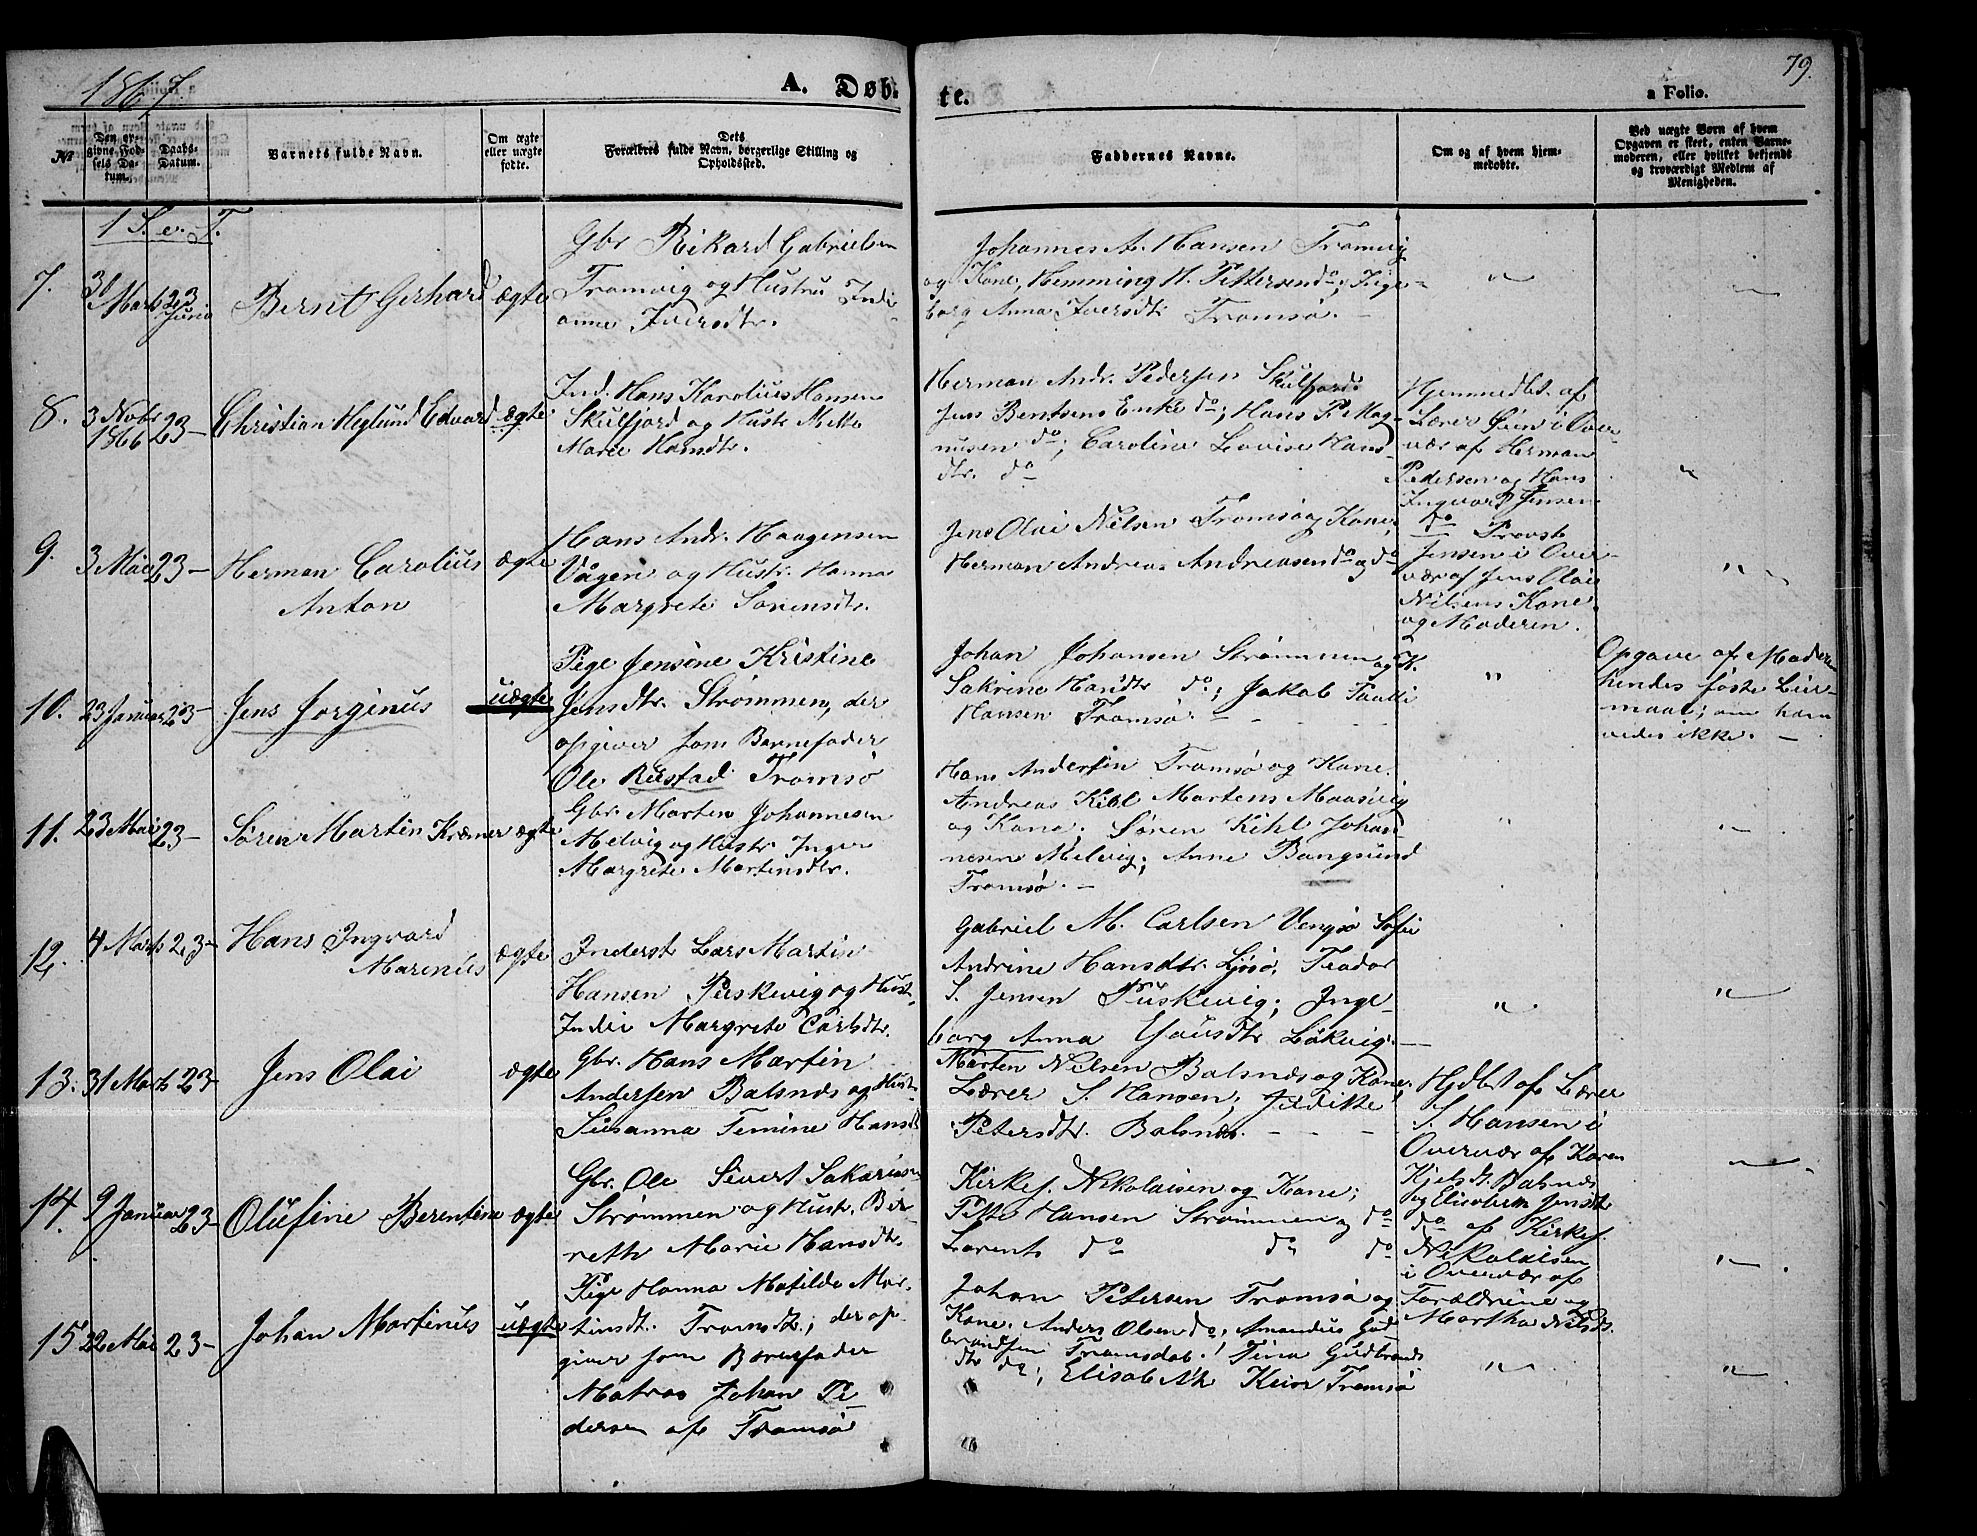 1867.
A. Døb-
te.
79.
a Folio.
No
Den opgivne Fødsels Datum.
Daabs-Datum.
Barnets fulde Navn.
Om ægte eller uægte fødte.
Dets Forældres fulde Navn, borgerlige Stilling og Opholdssted.
Faddernes Navne.
Om og af hvem hjemmedøbte.
Ved uægte Born af hvem Opgaven er skeet, enten Barnemoderen, eller hvilket bekjendt og troværdigt Medlem af Menigheden.
1 S. e. T.
7.
30 Marts
23 Juni
Bernt Gerhard
ægte
Gbr Rikard Gabrielsen
Tromvig og Hustru Indi-
anne Iversdtr.
Johannes A. Hansen Tromvig
og Kone, Hemming H. Pettersen do; Inge-
borg Anna Iversdtr Tromsø. -
"
8.
3 Novbr 1866
23 -
Christian Heglund Edvard
ægte
Ind. Hans Karolius Hansen
Skulfjord og Hustr Mette
Marie Hansdtr.
Herman Andr. Pedersen Skulfjord.
Jens Bentsens Enke do; Hans P. Mag-
nusen do; Caroline Lovise Hans-
dtr. do
Hjemmedbt. af
Lærer Øien i Over-
vær af Herman
Pedersen og Hans
Ingvart Jensen
do
"
9.
3 Mai
23 -
Herman Carolius
Anton
ægte
Hans Andr. Haagensen
Vågen og Hustr. Hanna
Margrete Sørensdtr.
Jens Olai Nilsen Tromsø og Kone,
Herman Andreas Andreasen do og do
Provst
Jensen i Over-
vær af Jens Olai
Nilsens Kone
og Moderen.
"
10.
23 Januar
23 -
Jens Jørginus
uægte
Pige Jensine Kristine
Jensdtr. Strømmen, der
opgiver som Barnefader
Ole Rustad Tromsø
Johan Johansen Strømmen og K.
Sakrine Hansdtr do; Jakob
Hansen Tromsø.
"
Opgave af Moderen
hendes første Leier-
maal; om ham
vedes ikke. -
11.
23 Mai
23 -
Sören Martin Kræmer
ægte
Gbr. Morten Johannesen
Melvig og Hustr. Inger
Margrete Mortensdtr.
Hans Andersen Tromsø og Kone.
Andreas Kihl Mortens Maasvig
og Kone; Søren Kihl Johan-
nesen Melvig; Anne Bangsund
Tromsø. -
"
12.
4 Marts
23 -
Hans Ingvard
Marenius
ægte
Inderst Lars Martin
Hansen Puskevig og Hust.
Indie Margrete Carlsdtr.
Gabriel M. Carlsen Vengsø Sofie
Andrine Hansdtr. Ljøsø; Teodor
S. Jensen Puskevig; Inge-
borg Anna Lökvig. -
"
"
13.
31 Marts
23 -
Jens Olai
ægte
Gbr. Hans Martin
Andersen Balsnes og Hust.
Susanna Temine Hansdtr
Morten Nilsen Balsnes og Kone.
Lærer S. Hansen;
Petersdtr. Balsnes.
Hjdbt af Lærer
S. Hansen i
Overvær af Karen
Kjelsdtr. Balsnes
og Elisabeth Jensdtr
do
14.
9 Januar
23 -
Olufine Berentine
ægte
Gbr. Ole Sivert Sakariasen
Strømmen og Hustr. Ber-
reth Marie Hansdtr.
Kirkes. Nikolaisen og Kone;
Peter Hansen Strømmen og do
Lorents do do do
af Kirkes.
Nikolaisen
i Overvær af
Forældrene og
Martha Nilsdtr.
"
15
22 Mai
23 -
Johan Martinus
uægte
Pige Hanna Matilde Mor-
tinsdtr. Tromsdt.; der op-
giver som Barnefader
Matros Johan Pe-
dersen af Tromsø
Johan Petersen Tromsø og
Kone. Anders Olsen do; Amandus Gul-
brandsen Tromsdal; Tina Guldbrands-
dtr do; Elisabeth Tromsø
"
"